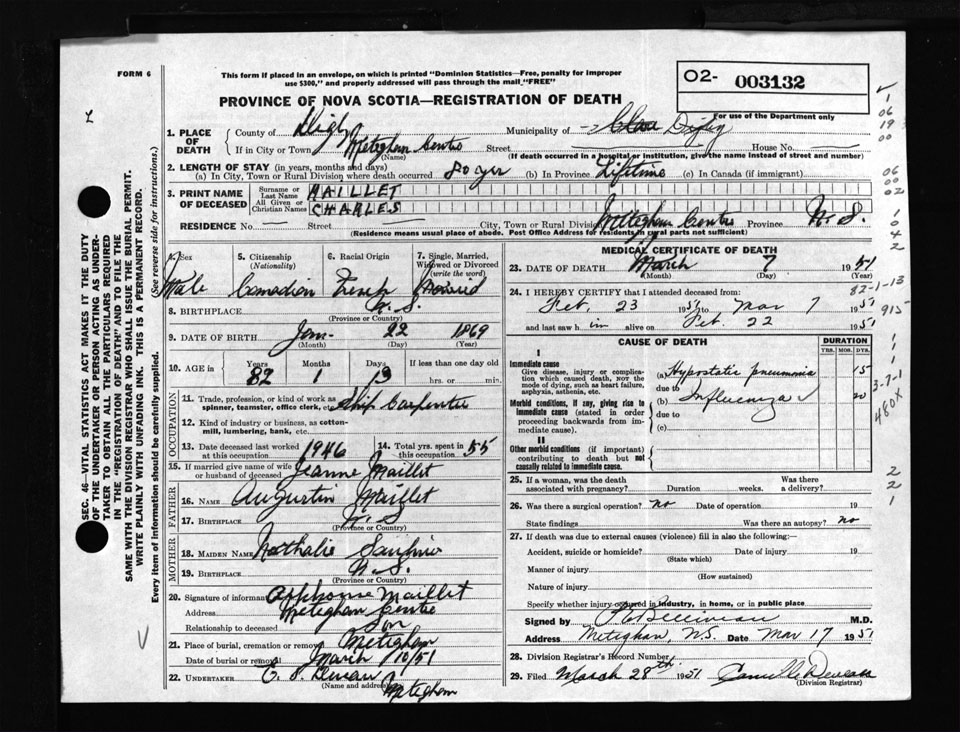 FORM 6
This form if placed in an envelope, on which is printed "Dominion Statistics—Free, penalty for improper
use $300," and properly addressed will pass through the mail "FREE"
O2- 003132
PROVINCE OF NOVA SCOTIA—REGISTRATION OF DEATH
For use of the Department only
1. PLACE OF DEATH County of Digby Municipality of Clare Digby
If in City or Town Meteghan Centre (Name) Street House No.
(If death occurred in a hospital or institution, give the name instead of street and number)
2. LENGTH OF STAY (in years, months and days)
(a) In City, Town or Rural Division where death occurred 80 yrs (b) In Province Lifetime (c) In Canada (if immigrant)
3. PRINT NAME OF DECEASED Surname or Last Name MAILLET
All Given or Christian Names CHARLES
RESIDENCE No.— Street City, Town or Rural Division Meteghan Centre Province N. S.
(Residence means usual place of abode. Post Office Address for residents in rural parts not sufficient)
4. Sex 5. Citizenship (Nationality) 6. Racial Origin 7. Single, Married, Widowed or Divorced (write the word)
Male Canadian French Married
8. BIRTHPLACE N. S.
(Province or Country)
9. DATE OF BIRTH Jan. 22 1869
(Month) (Day) (Year)
10. AGE in Years Months Days If less than one day old
82 1 13 hrs. or min.
OCCUPATION
11. Trade, profession, or kind of work as spinner, teamster, office clerk, etc. Ship Carpenter
12. Kind of industry or business, as cotton-mill, lumbering, bank, etc.
13. Date deceased last worked at this occupation 1946 14. Total yrs. spent in this occupation 55
15. If married give name of wife or husband of deceased Jeanne Maillet
FATHER
16. NAME Augustin Maillet
17. BIRTHPLACE N. S.
(Province or Country)
MOTHER
18. MAIDEN NAME Nathalie
19. BIRTHPLACE N. S.
(Province or Country)
20. Signature of informant Alphonse Maillet
Address Meteghan Centre
Relationship to deceased Son
21. Place of burial, cremation or removal Meteghan
Date of burial or removal March 10/51
22. UNDERTAKER
(Name and address) Meteghan
MEDICAL CERTIFICATE OF DEATH
23. DATE OF DEATH March 7 1951
(Month) (Day) (Year)
24. I HEREBY CERTIFY that I attended deceased from:
Feb. 23 1951 to Mar 7 1951
and last saw him alive on Feb. 22 1951
CAUSE OF DEATH DURATION
YRS. MOS. DYS.
I
Immediate cause
Give disease, injury or complication which caused death, not the mode of dying, such as heart failure, asphyxia, asthenia, etc.
(a) Hypostatic pneumonia 15
due to
Morbid conditions, if any, giving rise to immediate cause (stated in order proceeding backwards from immediate cause).
(b) Influenza 20
due to
(c)
II
Other morbid conditions (if important) contributing to death but not causally related to immediate cause.
25. If a woman, was the death associated with pregnancy? Duration weeks. Was there a delivery?
26. Was there a surgical operation? No Date of operation 19
State findings Was there an autopsy? No
27. If death was due to external causes (violence) fill in also the following:—
Accident, suicide or homicide? Date of injury 19
(State which)
Manner of injury
(How sustained)
Nature of injury
Specify whether injury occurred in industry, in home, or in public place
Signed by M.D.
Address Meteghan, N.S. Date Mar 17 1951
28. Division Registrar's Record Number
29. Filed March 28th 1951
(Division Registrar)
SEC. 46—VITAL STATISTICS ACT MAKES IT THE DUTY
OF THE UNDERTAKER OR PERSON ACTING AS UNDER-
TAKER TO OBTAIN ALL THE PARTICULARS REQUIRED
IN THE "REGISTRATION OF DEATH" AND TO FILE THE
SAME WITH THE DIVISION REGISTRAR WHO SHALL ISSUE THE BURIAL PERMIT.
WRITE PLAINLY WITH UNFADING INK. THIS IS A PERMANENT RECORD.
Every item of information should be carefully supplied. (See reverse side for instructions.)
1
06
19
00
06
00
02
1
0
4
2
82-1-13
915
1
1
1
3-7-1
480X
2
2
1